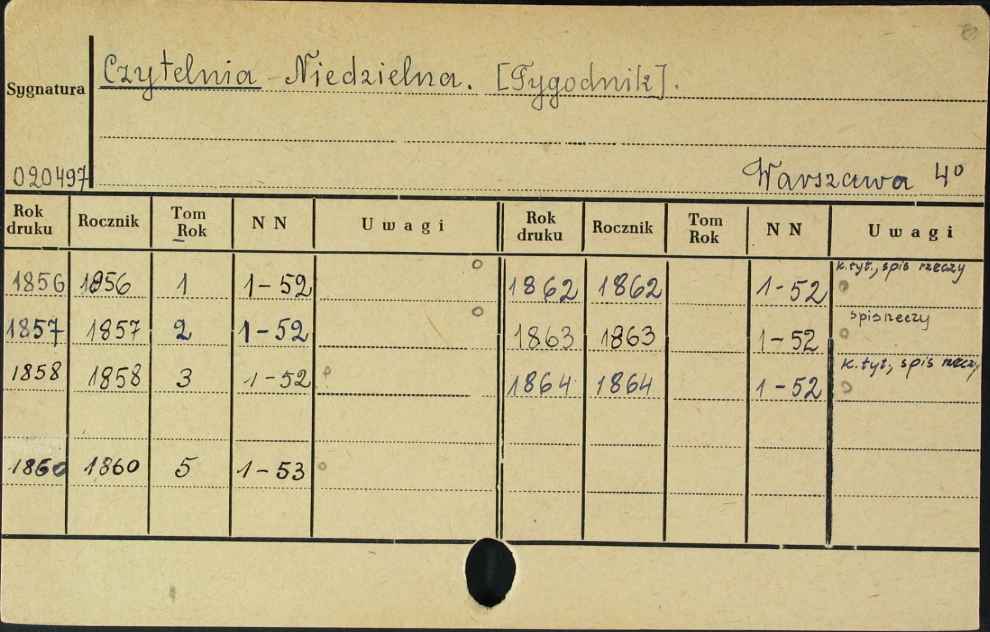 Sygnatura
Czytelnia Niedzielna. [Tygodnik].
020497
Warszawa 4º
Rok druku Rocznik Tom Rok N N Uwagi Rok druku Rocznik Tom Rok N N Uwagi
1856 1856 1 1-52 1862 1862 1-52 k.tyt., spis rzeczy
1857 1857 2 1-52 1863 1863 1-52 spis rzeczy
1858 1858 3 1-52 1864 1864 1-52 k.tyt., spis rzeczy
1860 1860 5 1-53